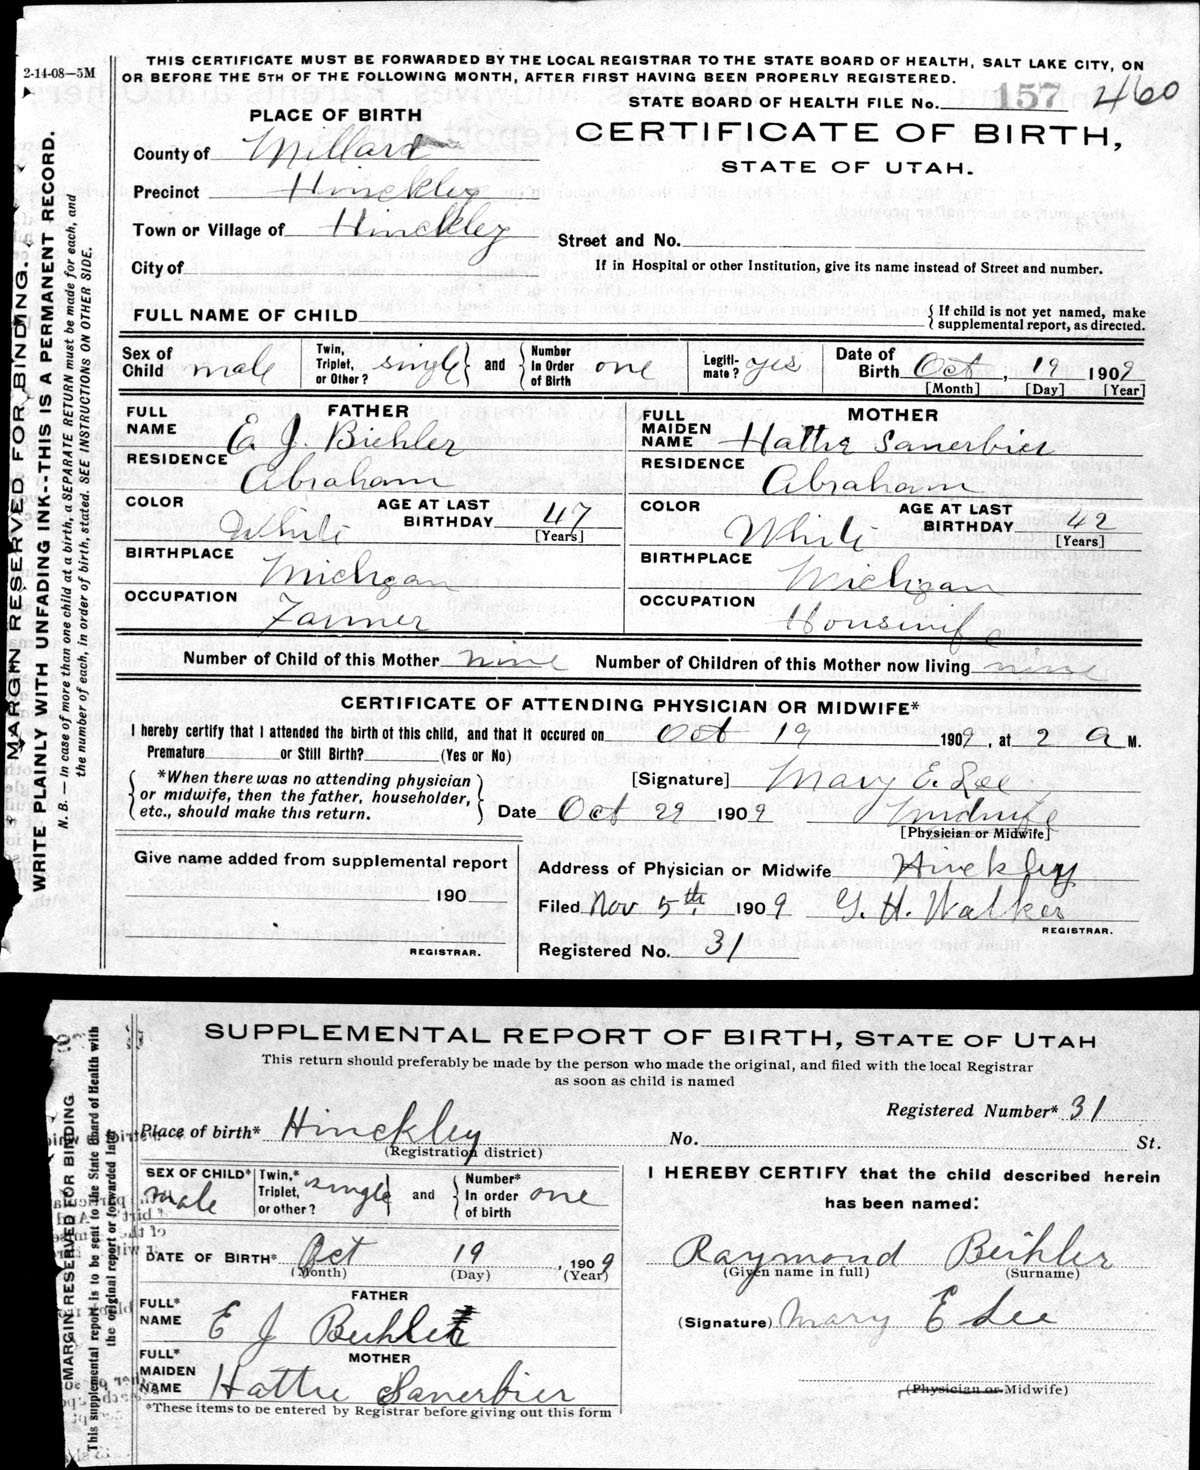 2-14-08—5M
THIS CERTIFICATE MUST BE FORWARDED BY THE LOCAL REGISTRAR TO THE STATE BOARD OF HEALTH, SALT LAKE CITY, ON
OR BEFORE THE 5TH OF THE FOLLOWING MONTH, AFTER FIRST HAVING BEEN PROPERLY REGISTERED.
STATE BOARD OF HEALTH FILE No. 157 460
MARGIN RESERVED FOR BINDING.
WRITE PLAINLY WITH UNFADING INK--THIS IS A PERMANENT RECORD.
N. B. — In case of more than one child at a birth, a SEPARATE RETURN must be made for each, and
the number of each, in order of birth, stated. SEE INSTRUCTIONS ON OTHER SIDE.
PLACE OF BIRTH
CERTIFICATE OF BIRTH,
STATE OF UTAH.
County of Millard
Precinct Hinckley
Town or Village of Hinckley
Street and No.
City of
If in Hospital or other Institution, give its name instead of Street and number.
FULL NAME OF CHILD
{ If child is not yet named, make
supplemental report, as directed.
Sex of Child male Twin, Triplet, or Other? single } and { Number In Order of Birth one Legiti-mate? yes Date of Birth Oct, 19 1909
[Month] [Day] [Year]
FATHER MOTHER
FULL NAME E J. Biehler FULL MAIDEN NAME Hattie Sanerbier
RESIDENCE Abraham RESIDENCE Abraham
COLOR White AGE AT LAST BIRTHDAY 47 [Years] COLOR White AGE AT LAST BIRTHDAY 42 [Years]
BIRTHPLACE Michigan BIRTHPLACE Michigan
OCCUPATION Farmer OCCUPATION Housewife
Number of Child of this Mother nine Number of Children of this Mother now living nine
CERTIFICATE OF ATTENDING PHYSICIAN OR MIDWIFE*
I hereby certify that I attended the birth of this child, and that it occured on Oct 19 1909, at 2 a M.
Premature or Still Birth? (Yes or No)
{ *When there was no attending physician
or midwife, then the father, householder,
etc., should make this return. }
[Signature] Mary E. Lee
Date Oct 29 1909 midwife
[Physician or Midwife]
Give name added from supplemental report
190
REGISTRAR.
Address of Physician or Midwife Hinckley
Filed Nov 5th. 1909 G. H. Walker
REGISTRAR.
Registered No. 31
MARGIN RESERVED FOR BINDING
This supplemental report is to be sent to the State Board of Health with
the original report or forwarded later
SUPPLEMENTAL REPORT OF BIRTH, STATE OF UTAH
This return should preferably be made by the person who made the original, and filed with the local Registrar
as soon as child is named
Registered Number* 31
Place of birth* Hinckley No. St.
(Registration district)
SEX OF CHILD* male Twin,* Triplet, or other? single } and { Number* In order of birth one
I HEREBY CERTIFY that the child described herein
has been named:
DATE OF BIRTH* Oct 19, 1909
(Month) (Day) (Year)
Raymond Beihler
(Given name in full) (Surname)
FATHER
FULL* NAME E J Beihler
(Signature) Mary E Lee
MOTHER
FULL* MAIDEN NAME Hattie Sanerbier
(Physician or Midwife)
*These items to be entered by Registrar before giving out this form